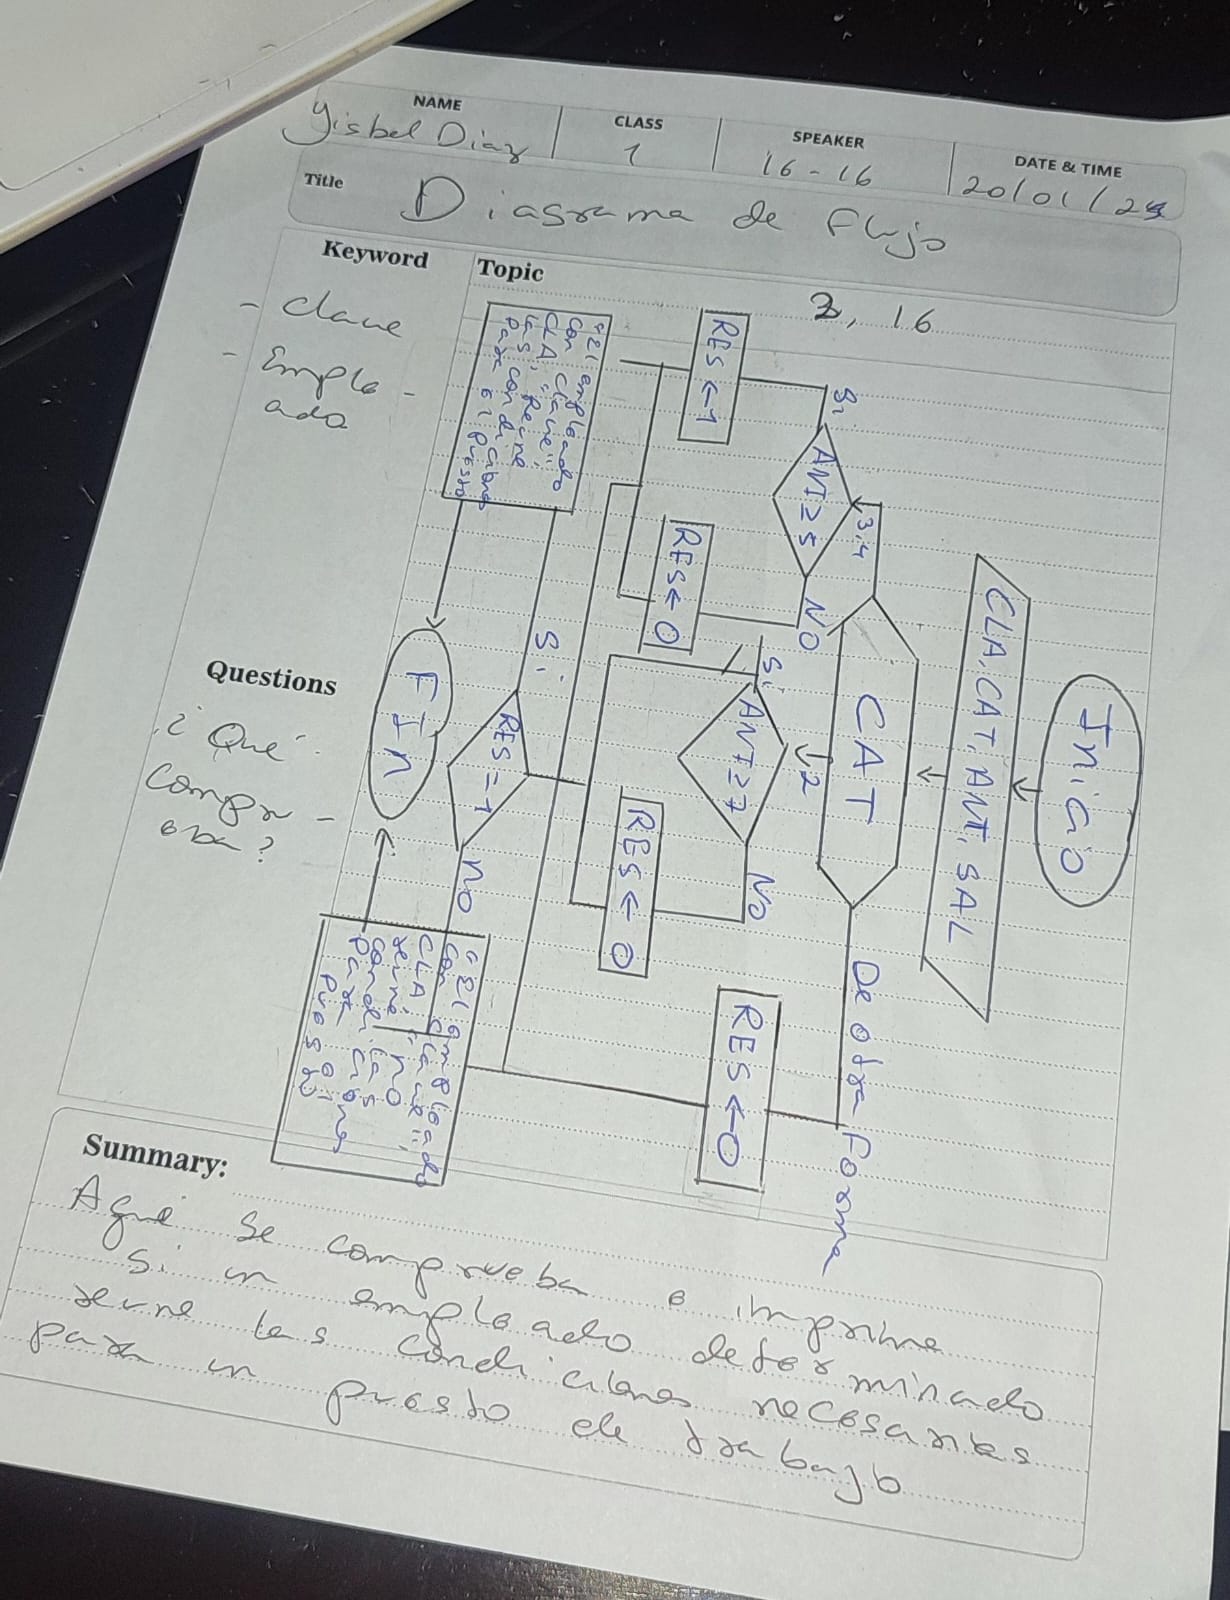 NAME
Yisbel Diaz
CLASS
1
SPEAKER
16-16
DATE & TIME
20/01/25
Title
Diagrama de flujo
Keyword
- clave
- Emple -
ado
Topic
3, 16
Inicio
CLA, CAT, ANT, SAL
CAT
3,4
2
De otra Forma
Si
ANT≥5
NO
RES←1
RES←0
Si
ANT≥7
NO
RES←0
RES←0
Si
RES=1
no
"El empleado
con clave",
CLA, "Reune
las condiciones
para el puesto
"El empleado
con clave",
CLA, "no
reune las
condiciones
para puesto"
FIn
Questions
¿Qué
compru -
eba?
Summary:
Aquí se comprueba e imprime
si un empleado determinado
reune las condiciones necesarias
para un puesto de trabajo